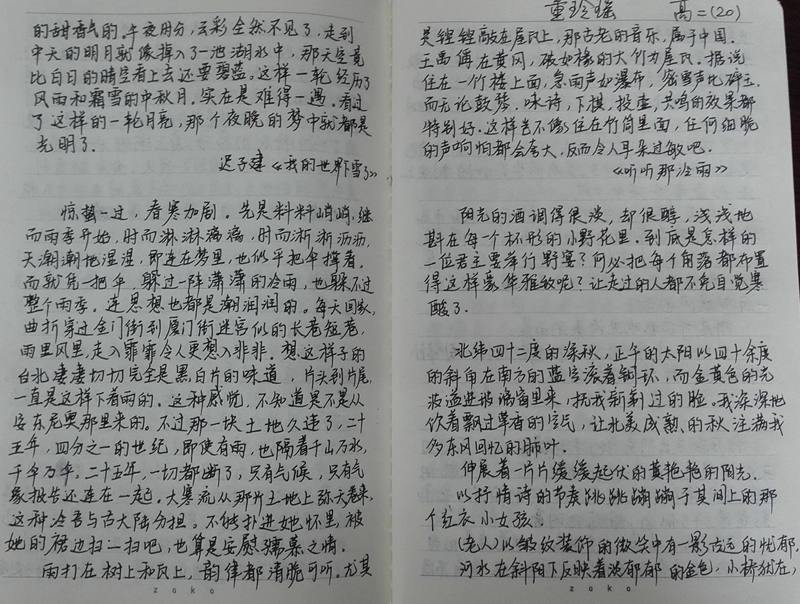 的甜香气的。午夜时分，云彩全然不见了，走到
中天的明月就像掉入了一池湖水中，那天空竟
比白日的晴空看上去还要碧蓝。这样一轮经历了
风雨和霜雪的中秋月。实在是难得一遇。看过
了这样的一轮月亮，那个夜晚的梦中就都是
光明了。
迟子建《我的世界下雪了》
惊蛰一过，春寒加剧。先是料料峭峭，继
而雨季开始，时而淋淋漓漓，时而淅淅沥沥，
天潮潮地湿湿，即连在梦里，也似乎把伞撑着。
而就凭一把伞，躲过一阵潇潇的冷雨，也躲不过
整个雨季。连思想也都是潮润润的。每天回家，
曲折穿过金门街到厦门街迷宫似的长巷短巷，
雨里风里，走入霏霏令人更想入非非。想这样子的
台北凄凄切切完全是黑白片的味道，片头到片尾，
一直是这样下着雨的。这种感觉，不知道是不是从
安东尼奥那里来的。不过那一块土地久违了，二十
五年，四分之一的世纪，即使有雨，也隔着千山万水，
千伞万伞。二十五年，一切都断了，只有气候，只有气
象报告还连在一起。大寒流从那片土地上弥天卷来，
这种冷吾与古大陆分担。不能扑进她怀里，被
她的裙边扫一扫吧，也算是安慰孺慕之情。
雨打在树上和瓦上，韵律都清脆可听。尤其
董玲瑶 高二(20)
是铿铿敲在屋瓦上，那古老的音乐，属于中国。
王禹偁在黄冈，破如椽的大竹为屋瓦。据说
住在一竹楼上面，急雨声如瀑布，密雪声比碎玉。
而无论鼓琴，咏诗，下棋，投壶，共鸣的效果都
特别好。这样岂不像住在竹筒里面，任何细脆
的声响怕都会夸大，反而令人耳朵过敏吧。
《听听那冷雨》
阳光的酒调得很淡，却很醇，浅浅地
斟在每一个杯形的小野花里。到底是怎样的
一位君主要举行野宴？何必把每个角落都布置
得这样豪华雅致呢？让走过的人都不免自觉寒
酸了。
北纬四十二度的深秋，正午的太阳以四十余度
的斜角在南方的蓝空滚着铜环，而金黄色的光
波溢进玻璃窗里来，抚我新剃过的脸。我深深地
饮着飘过草香的空气，让北美成熟的秋注满我
多东风回忆的肺叶。
伸展着一片片缓缓起伏的黄艳艳的阳光。
以抒情诗的节奏跳跳蹦蹦于其间上的那
个红衣小女孩。
(老人)以皱纹装饰的微笑中有一影古远的忧郁，
河水在斜阳下反映着淡郁郁的金色，小桥犹在，
zoko
zoko